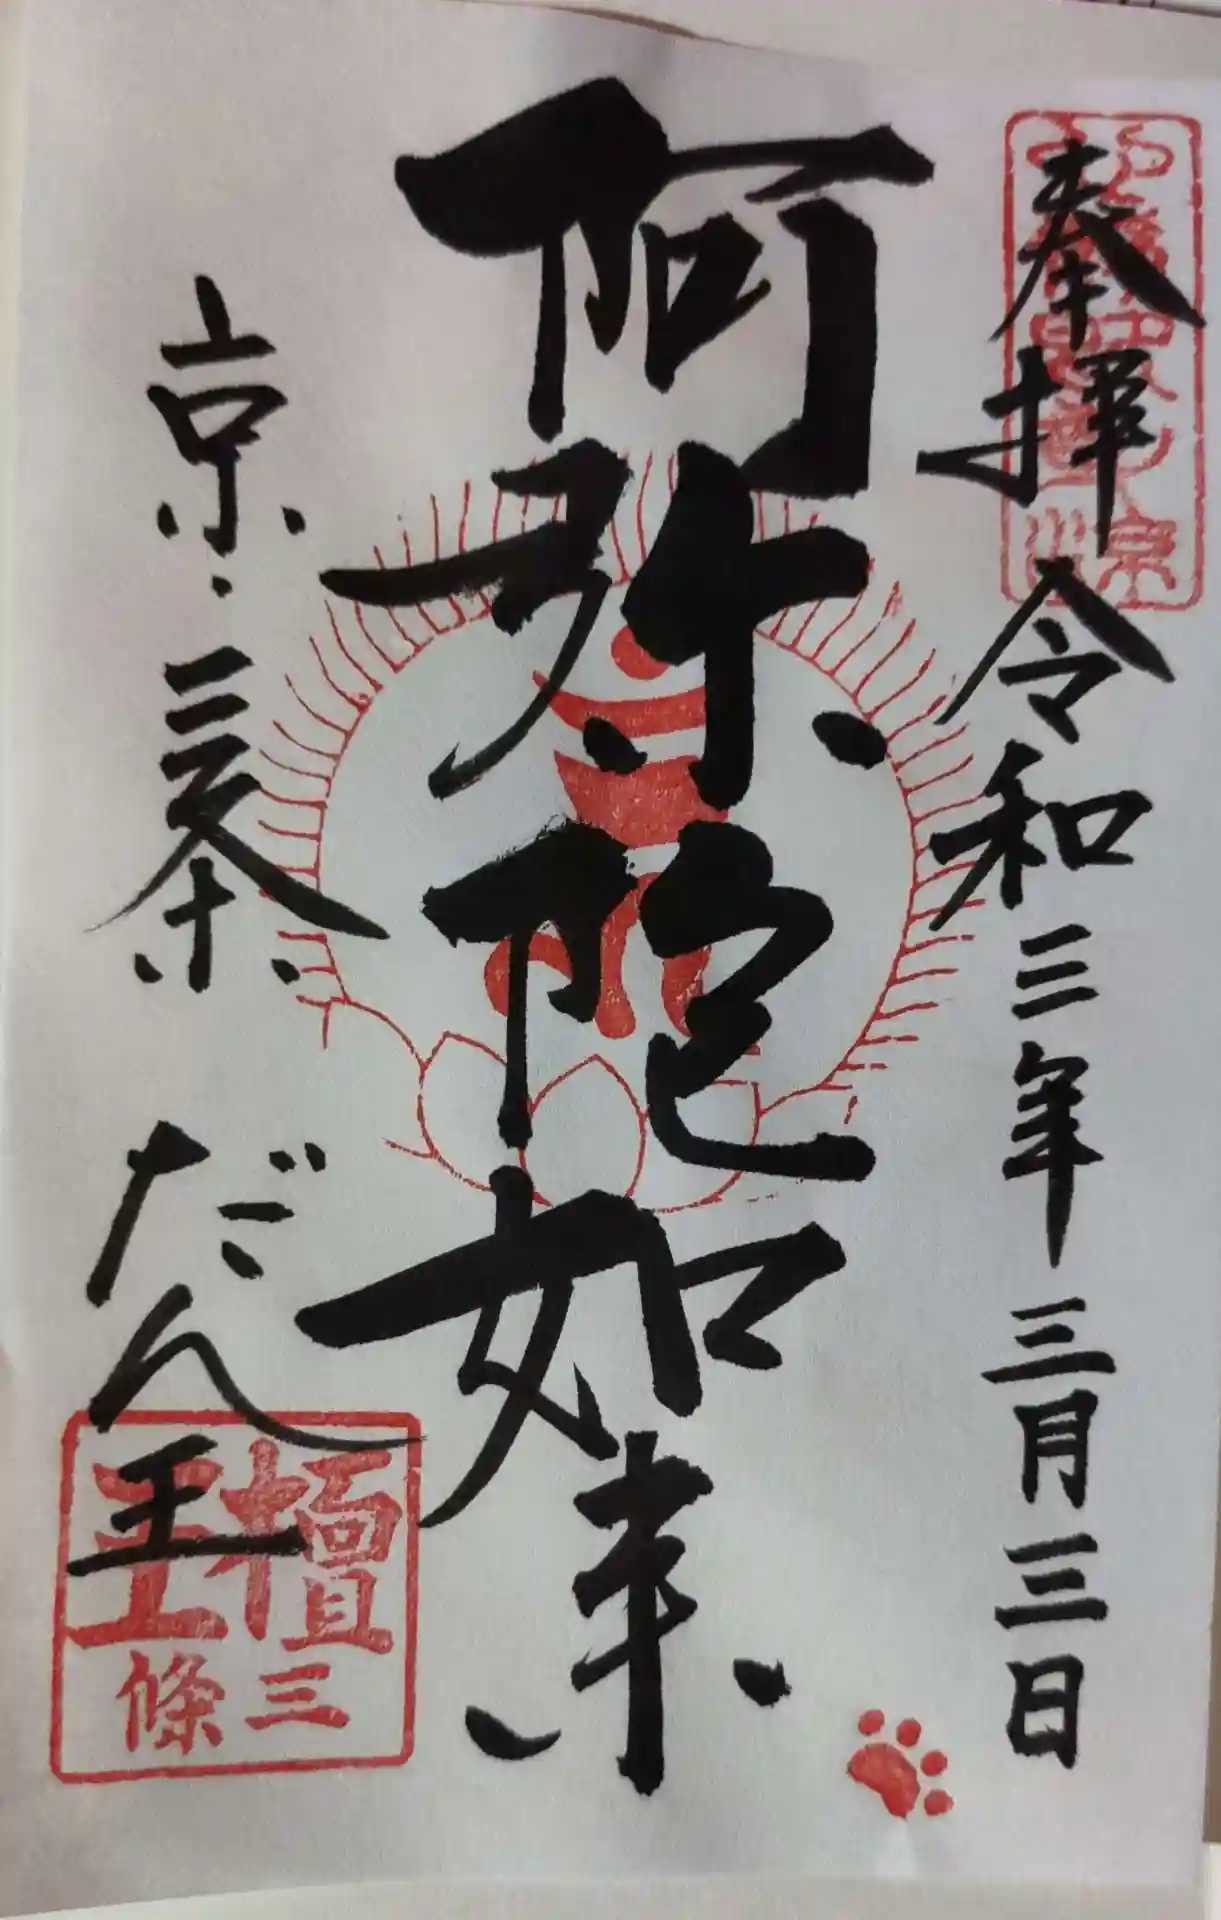 奉拝 令和三年三月三日
阿弥陀如来
京・三条 だん王
檀王
三條